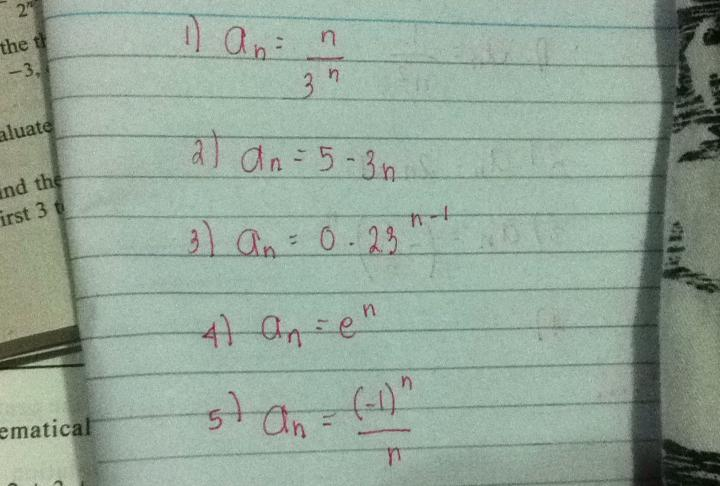 2ⁿ
the
-3,
aluate
ind the
irst 3
ematical
1) aₙ = n/3ⁿ
2) aₙ = 5 - 3n
3) aₙ = 0.23ⁿ⁻¹
4) aₙ = eⁿ
5) aₙ = (-1)ⁿ/n